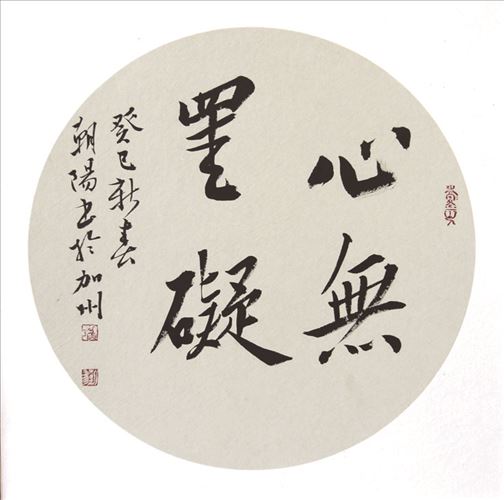 心無
罣礙
癸巳新春
朝陽书於加州